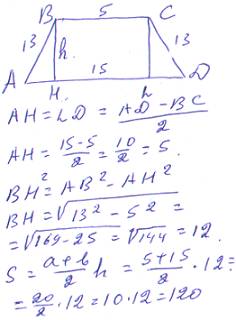 B 5 C
13 h 13
A 15 D
H L
AH = LD = (AD - BC)/2
AH = (15-5)/2 = 10/2 = 5.
BH² = AB² - AH²
BH = √(13² - 5²) =
= √(169-25) = √144 = 12.
S = (a+b)/2 h = (5+15)/2 · 12 =
= 20/2 · 12 = 10 · 12 = 120